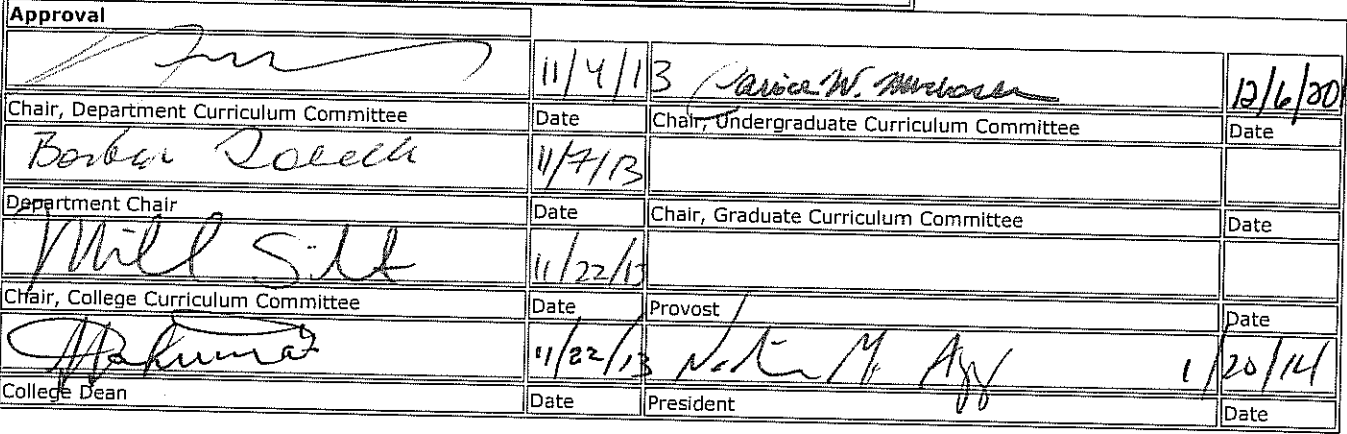 Approval
11/4/13 12/6/20
Chair, Department Curriculum Committee Date Chair, Undergraduate Curriculum Committee Date
11/7/13
Department Chair Date Chair, Graduate Curriculum Committee Date
11/22/13
Chair, College Curriculum Committee Date Provost Date
11/22/13 1/20/14
College Dean Date President Date